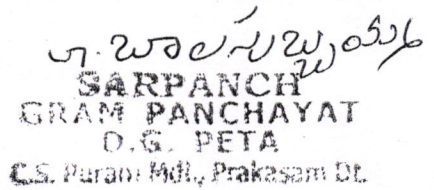 గ. బాలసుబ్బయ్య
SARPANCH
GRAM PANCHAYAT
D.G. PETA
C.S. Puram Mdl., Prakasam Dt.